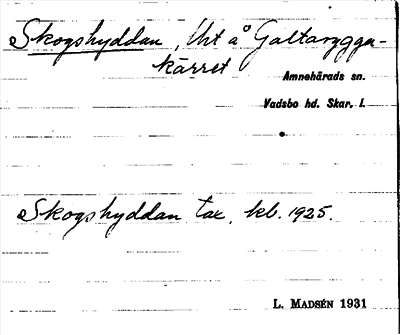 Skogshyddan, Uht å Galtarygga-
kärret
Amnehärads sn.
Vadsbo hd. Skar. l.
Skogshyddan tax. kb. 1925.
L. MADSÉN 1931